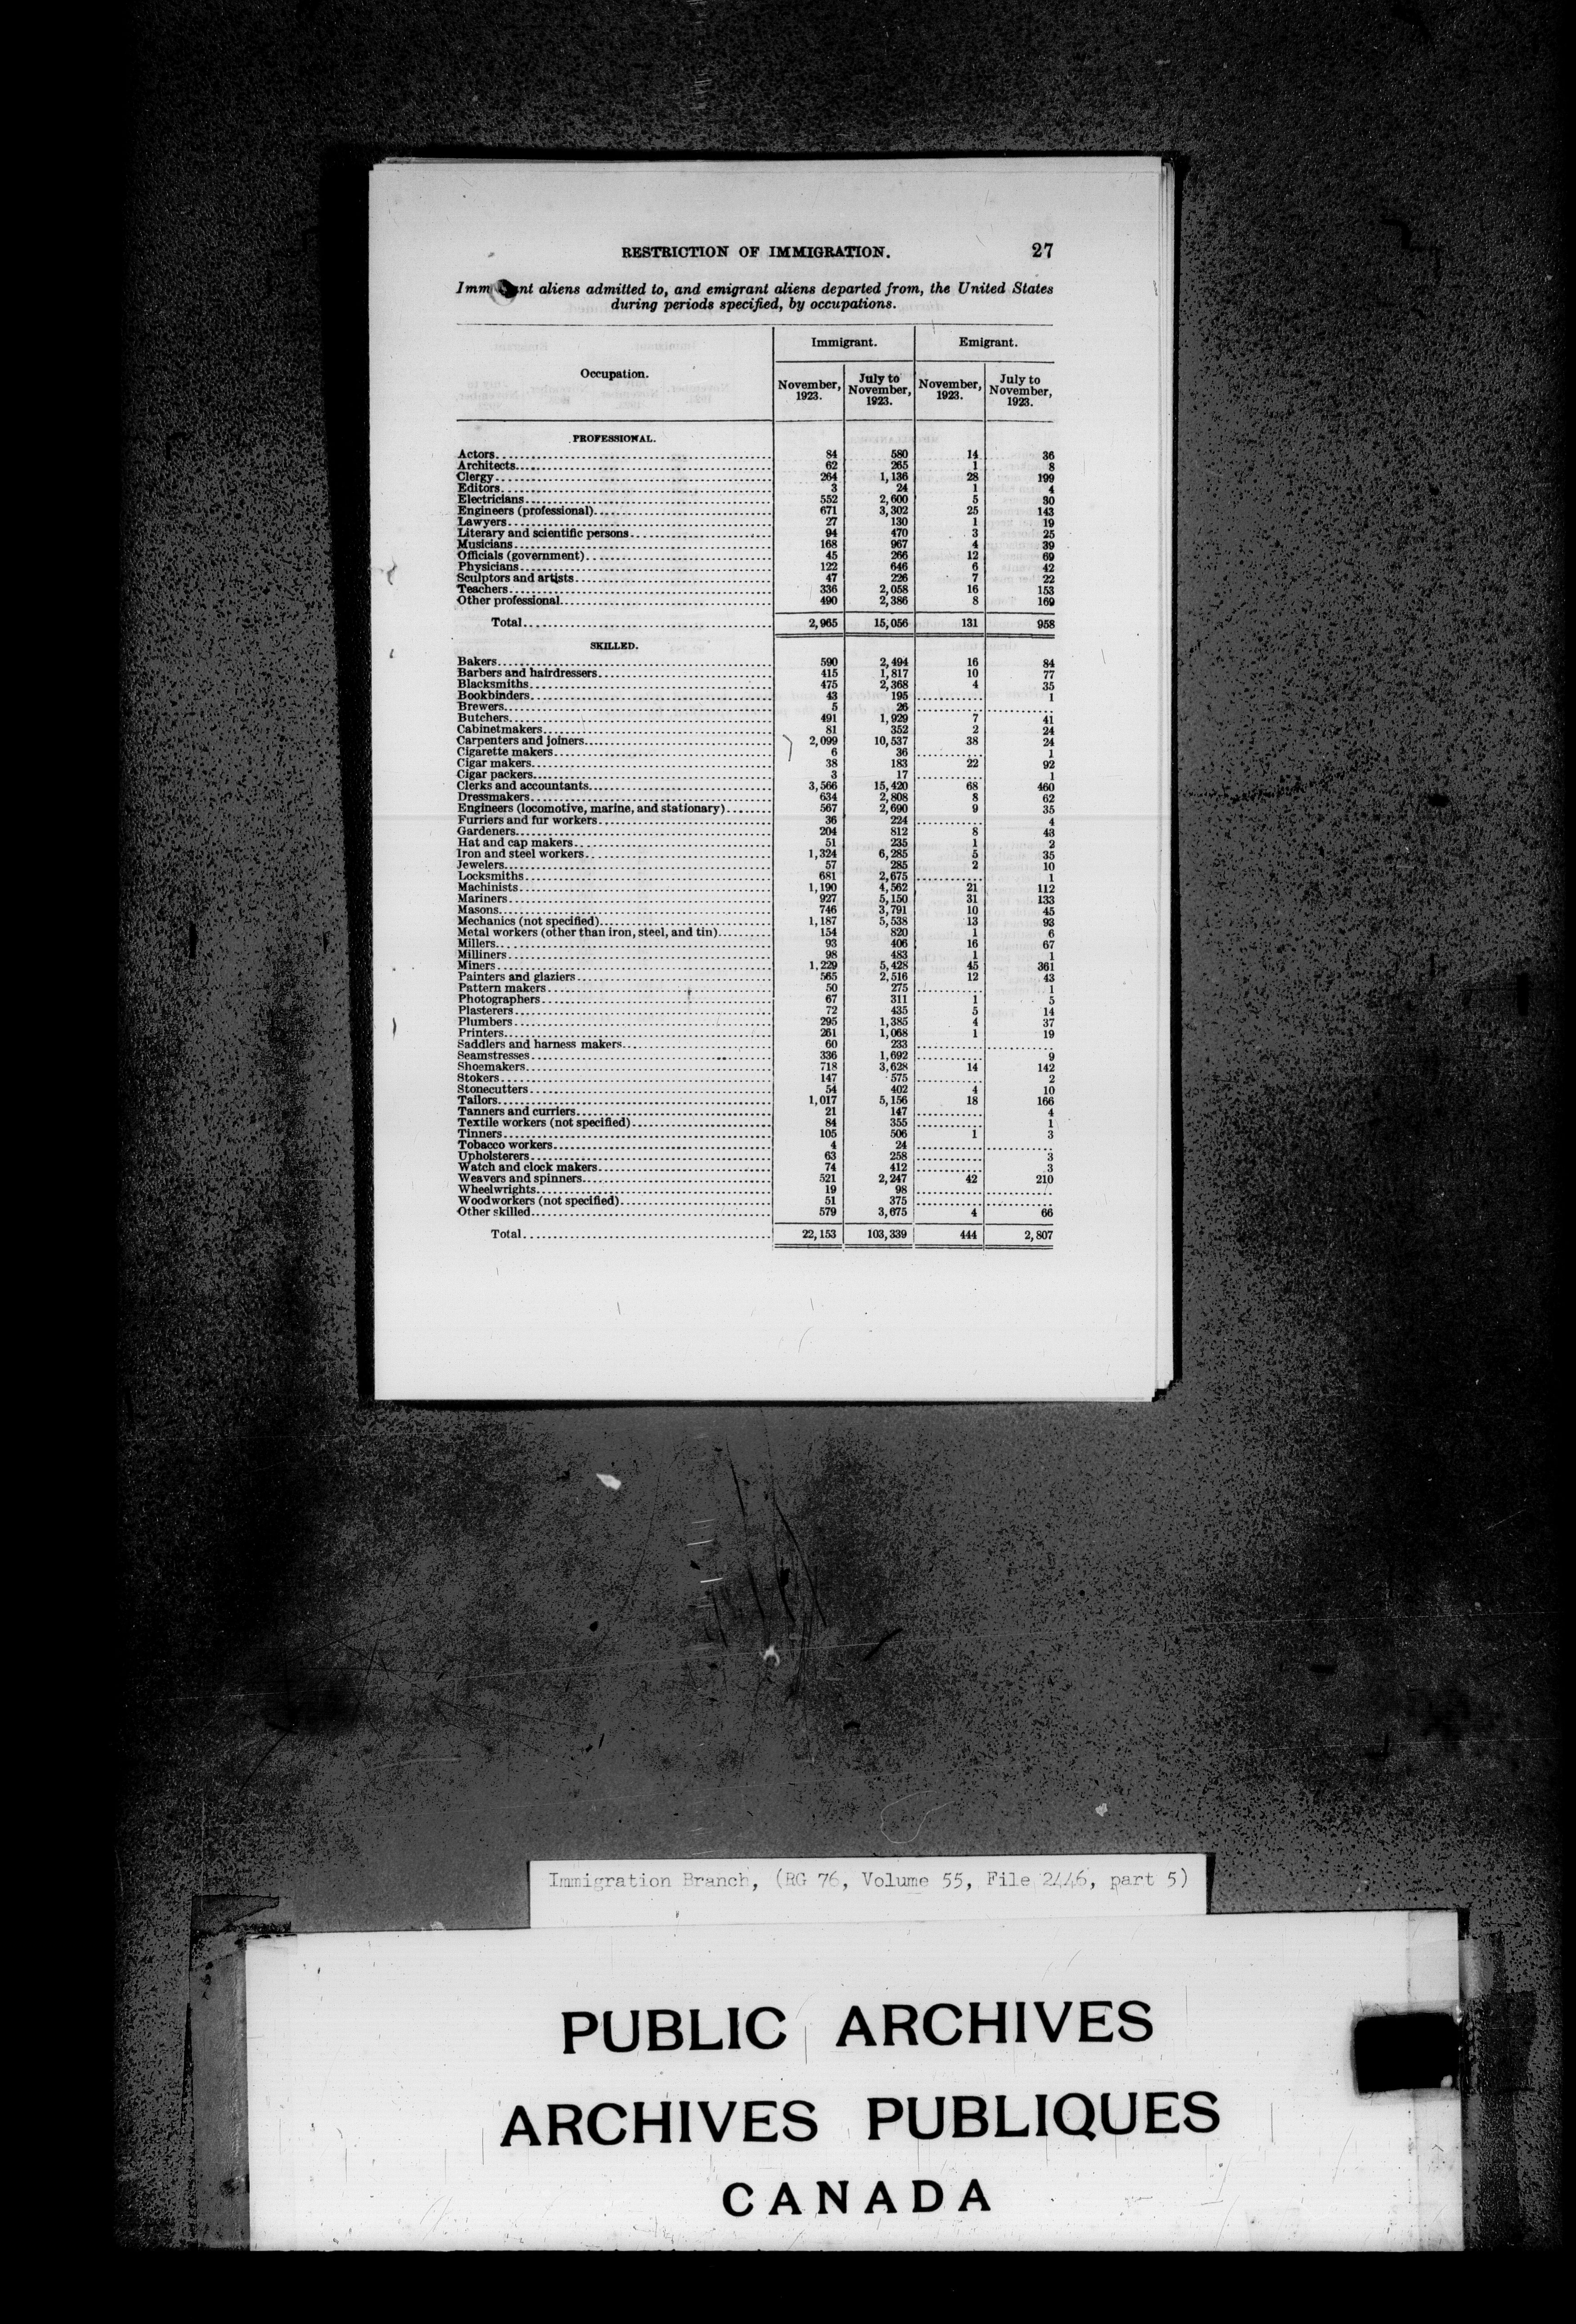 RESTRICTION OF IMMIGRATION. 27
Imm nt aliens admitted to, and emigrant aliens departed from, the United States
during periods specified, by occupations.
Occupation. Immigrant. Emigrant.
November, 1923. July to November, 1923. November, 1923. July to November, 1923.
PROFESSIONAL.
Actors 84 580 14 36
Architects 62 265 1 8
Clergy 264 1,136 28 199
Editors 3 24 1 4
Electricians 552 2,600 5 30
Engineers (professional) 671 3,302 25 143
Lawyers 27 130 1 19
Literary and scientific persons 94 470 3 25
Musicians 168 967 4 39
Officials (government) 45 266 12 69
Physicians 122 646 6 42
Sculptors and artists 47 226 7 22
Teachers 336 2,058 16 153
Other professional 490 2,386 8 169
Total 2,965 15,056 131 958
SKILLED.
Bakers 590 2,494 16 84
Barbers and hairdressers 415 1,817 10 77
Blacksmiths 475 2,368 4 35
Bookbinders 43 195 1
Brewers 5 26
Butchers 491 1,929 7 41
Cabinetmakers 81 352 2 24
Carpenters and joiners 2,099 10,537 38 24
Cigarette makers 6 36 1
Cigar makers 38 183 22 92
Cigar packers 3 17 1
Clerks and accountants 3,566 15,420 68 460
Dressmakers 634 2,808 8 62
Engineers (locomotive, marine, and stationary) 567 2,690 9 35
Furriers and fur workers 36 224 4
Gardeners 204 812 8 43
Hat and cap makers 51 235 1 2
Iron and steel workers 1,324 6,285 5 35
Jewelers 57 285 2 10
Locksmiths 681 2,675 1
Machinists 1,190 4,562 21 112
Mariners 927 5,150 31 133
Masons 746 3,791 10 45
Mechanics (not specified) 1,187 5,538 13 93
Metal workers (other than iron, steel, and tin) 154 820 1 6
Millers 93 406 16 67
Milliners 98 483 1 1
Miners 1,229 5,428 45 361
Painters and glaziers 565 2,516 12 43
Pattern makers 50 275 1
Photographers 67 311 1 5
Plasterers 72 435 5 14
Plumbers 295 1,385 4 37
Printers 261 1,068 1 19
Saddlers and harness makers 60 233
Seamstresses 336 1,692 9
Shoemakers 718 3,628 14 142
Stokers 147 575 2
Stonecutters 54 402 4 10
Tailors 1,017 5,156 18 166
Tanners and curriers 21 147 4
Textile workers (not specified) 84 355 1
Tinners 105 506 1 3
Tobacco workers 4 24
Upholsterers 63 258 3
Watch and clock makers 74 412 3
Weavers and spinners 521 2,247 42 210
Wheelwrights 19 98
Woodworkers (not specified) 51 375
Other skilled 579 3,675 4 66
Total 22,153 103,339 444 2,807
Immigration Branch, (RG 76, Volume 55, File 2446, part 5)
PUBLIC ARCHIVES
ARCHIVES PUBLIQUES
CANADA